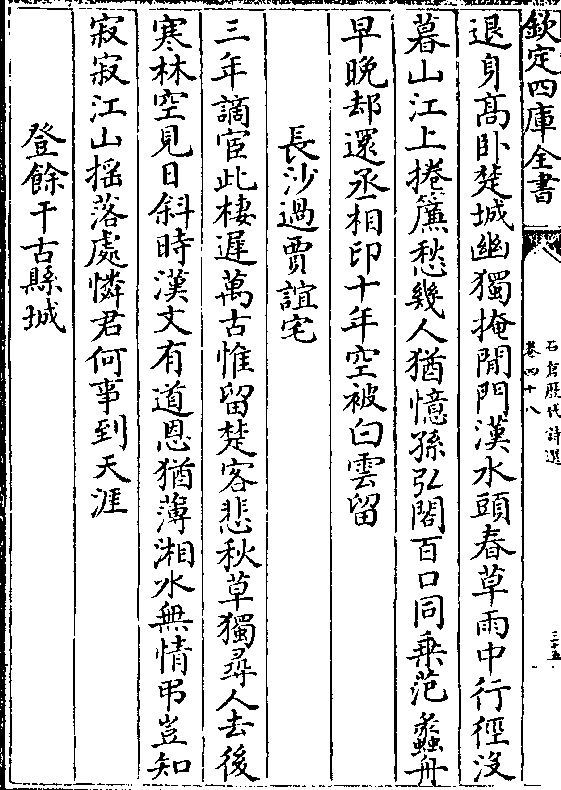 欽定四庫全書
石倉歷代詩選
卷四十八
三十五
退身髙卧楚城幽獨掩閒門漢水頭春草雨中行徑没
暮山江上捲簾愁幾人猶憶孫弘閣百口同乗范蠡舟
早晚却還丞相印十年空被白雲留
長沙過賈誼宅
三年謫宦此棲遲萬古惟留楚客悲秋草獨尋人去後
寒林空見日斜時漢文有道恩猶薄湘水無情弔豈知
寂寂江山揺落處憐君何事到天涯
登餘干古縣城